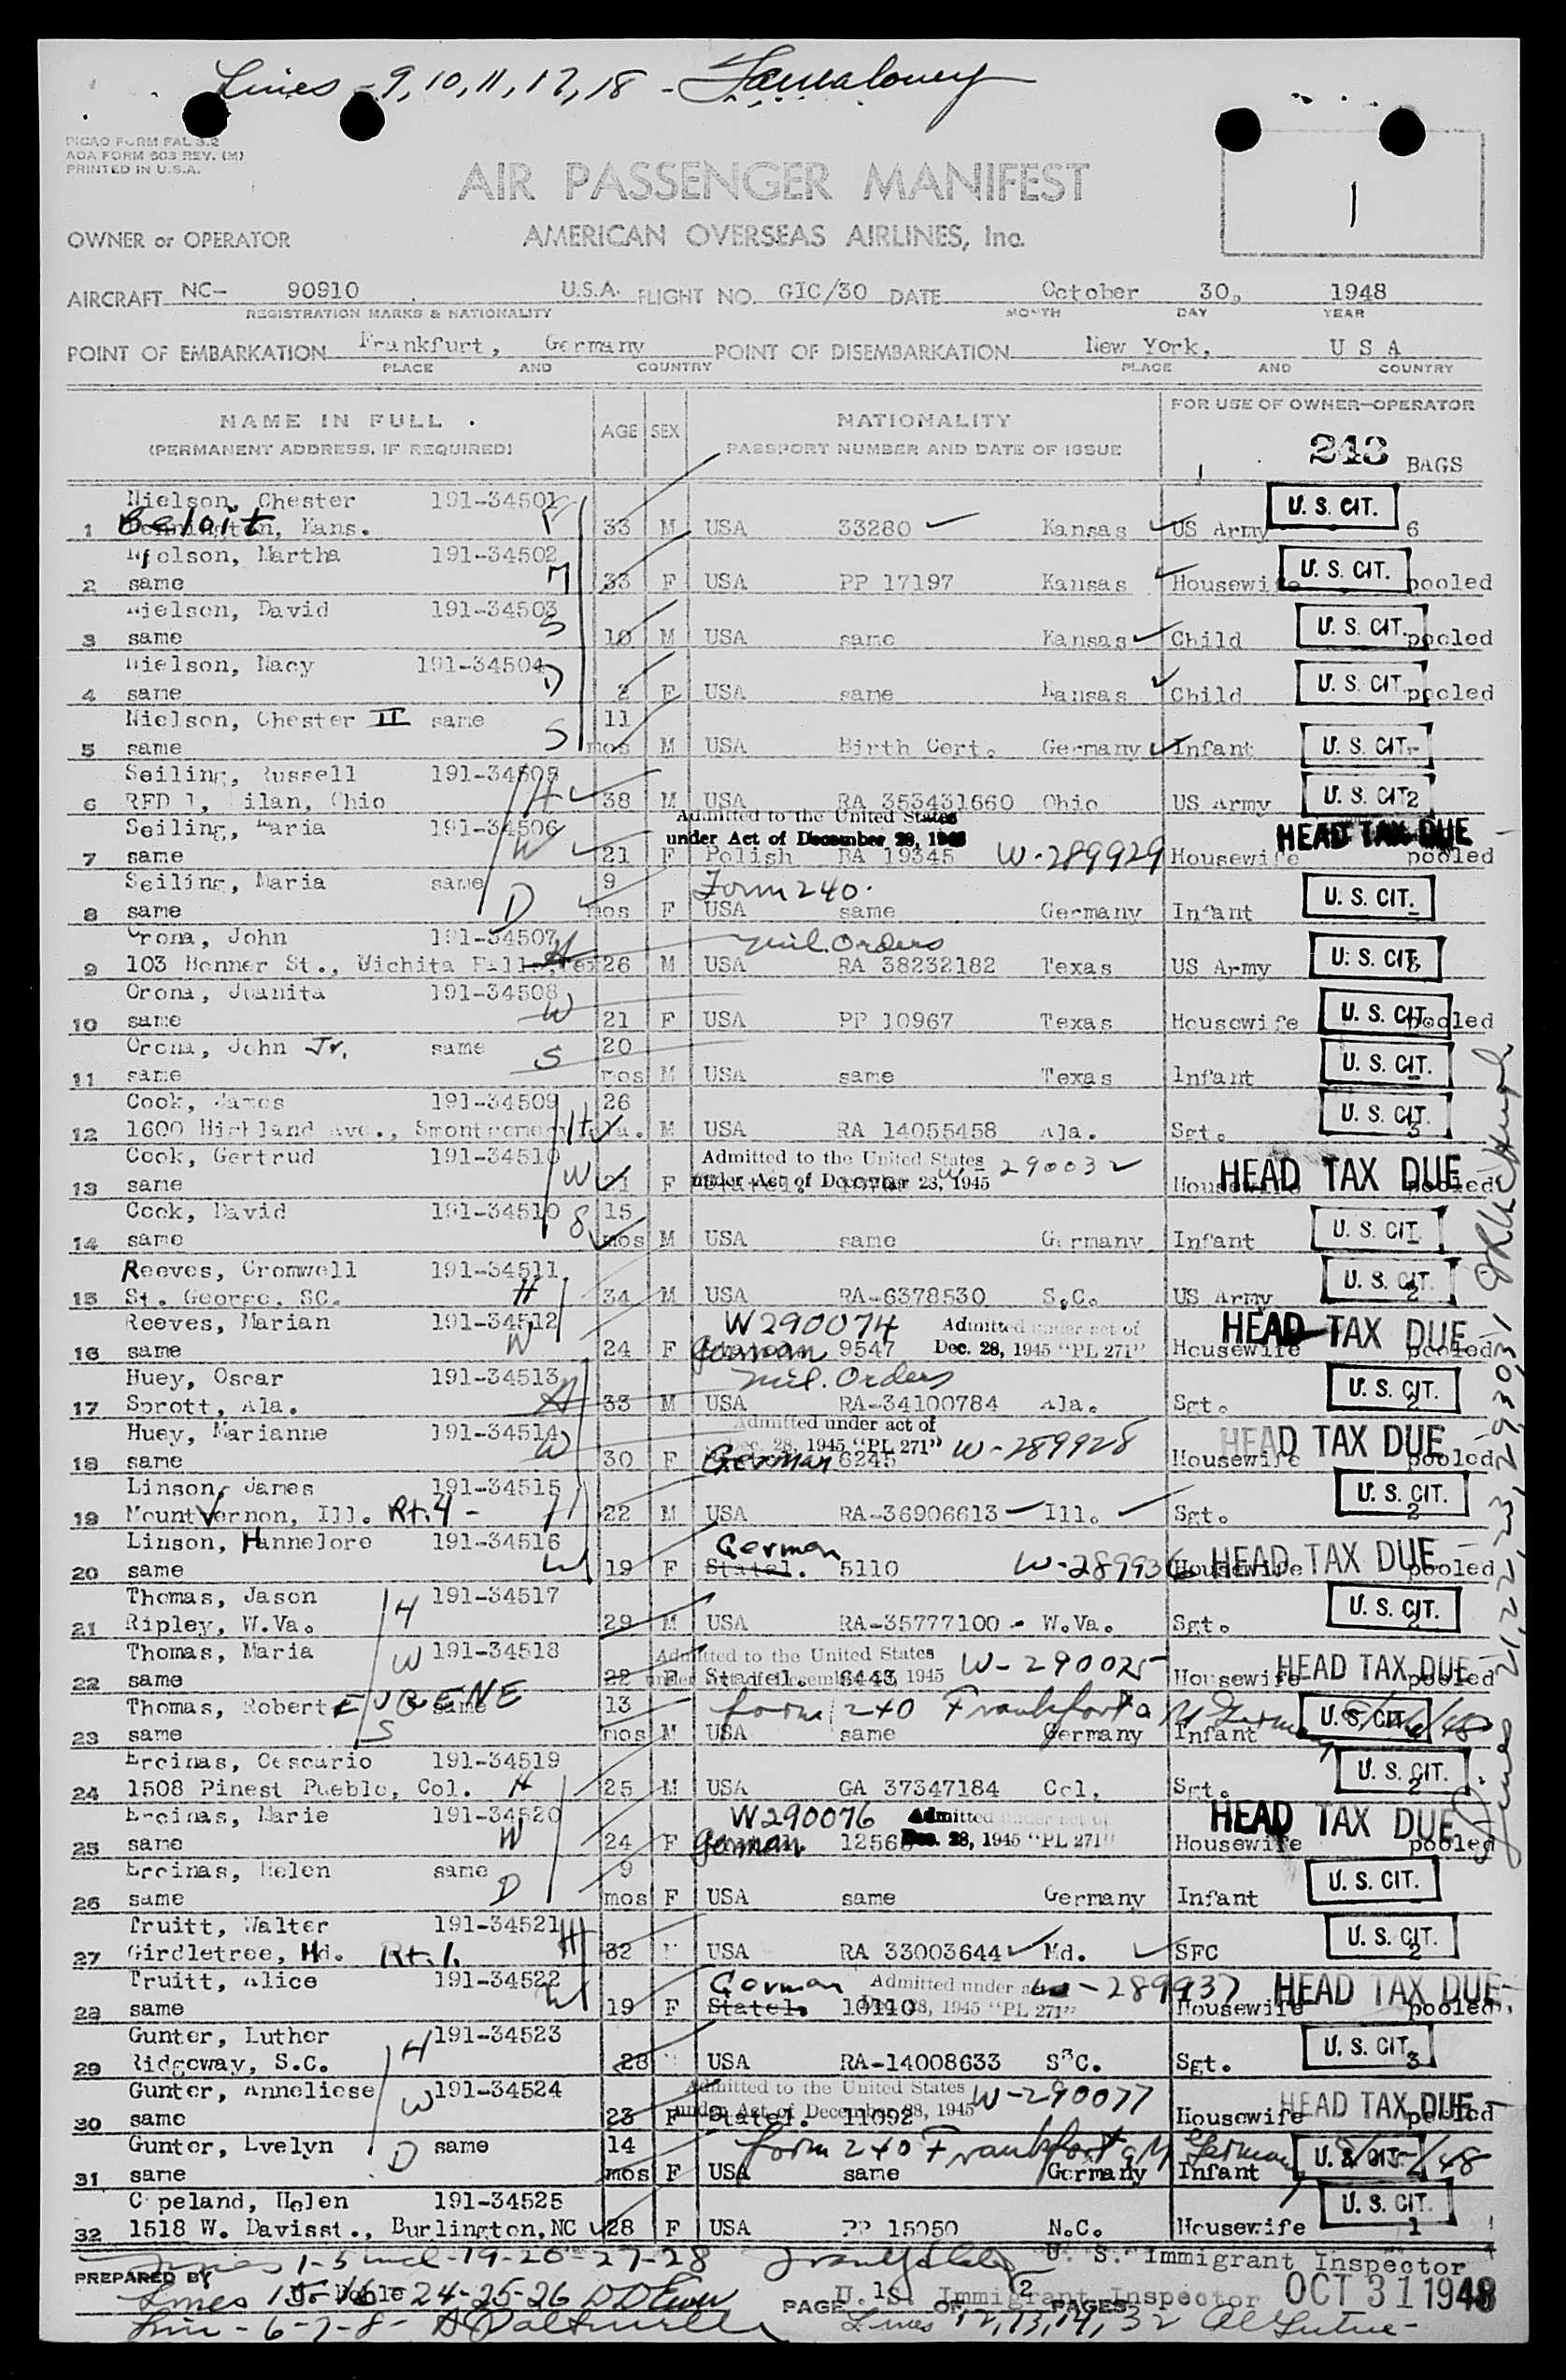 Lines - 9, 10, 11, 17, 18 -
PICAO FORM FAL 3.2
AOA FORM 603 REV. (M)
PRINTED IN U.S.A.
AIR PASSENGER MANIFEST
1
OWNER or OPERATOR AMERICAN OVERSEAS AIRLINES, Inc.
AIRCRAFT NC- 90910 U.S.A. FLIGHT NO. GIC/30 DATE October 30, 1948
REGISTRATION MARKS & NATIONALITY MONTH DAY YEAR
POINT OF EMBARKATION Frankfurt, Germany POINT OF DISEMBARKATION New York, U S A
PLACE AND COUNTRY PLACE AND COUNTRY
NAME IN FULL AGE SEX NATIONALITY FOR USE OF OWNER-OPERATOR
(PERMANENT ADDRESS, IF REQUIRED) PASSPORT NUMBER AND DATE OF ISSUE 243 BAGS
Nielson, Chester 191-34501 U. S. CIT.
1 Beloit, Kans. 33 M USA 33280 Kansas US Army 6
Nielson, Martha 191-34502 M U. S. CIT.
2 same 33 F USA PP 17197 Kansas Housewife pooled
Nielson, David 191-34503 S U. S. CIT.
3 same 10 M USA same Kansas Child pooled
Nielson, Nacy 191-34504 D U. S. CIT.
4 same 2 F USA same Kansas Child pooled
Nielson, Chester II same 11
5 same S mos M USA Birth Cert. Germany Infant U. S. CIT.
Seiling, Russell 191-34505 H
6 RFD 1, Milan, Ohio 38 M USA RA 353431660 Ohio US Army U. S. CIT. 2
Seiling, Maria 191-34506 W Admitted to the United States under Act of December 28, 1945 HEAD TAX DUE
7 same 21 F Polish RA 19345 W-289929 Housewife pooled
Seiling, Maria same 9 Form 240. U. S. CIT.
8 same D mos F USA same Germany Infant
Orona, John 191-34507 H Mil. Orders
9 103 Bonner St., Wichita Falls, Tex 26 M USA RA 38232182 Texas US Army U. S. CIT.
Orona, Juanita 191-34508 W U. S. CIT.
10 same 21 F USA PP 10967 Texas Housewife pooled
Orona, John Jr. same S 20 U. S. CIT.
11 same mos M USA same Texas Infant
Cook, James 191-34509 H 26 U. S. CIT.
12 1600 Highland Ave., M USA RA 14055458 Ala. Sgt. 3
Cook, Gertrud 191-34510 W Admitted to the United States 290032 HEAD TAX DUE
13 same 21 F under Act of December 28, 1945 Housewife pooled
Cook, David 191-34510 15 U. S. CIT.
14 same mos M USA same Germany Infant
Reeves, Cromwell 191-34511 U. S. CIT.
15 St. George, SC. H 34 M USA RA-6378530 S.C. US Army 2
Reeves, Marian 191-34512 W290074 Admitted under act of HEAD TAX DUE
16 same W 24 F German 9547 Dec. 28, 1945 "PL 271" Housewife pooled
Huey, Oscar 191-34513 Mil. Orders U. S. CIT.
17 Sprott, Ala. H 33 M USA RA-34100784 Ala. Sgt. 2
Huey, Marianne 191-34514 W Admitted under act of Dec. 28, 1945 "PL 271" W-289928 HEAD TAX DUE
18 same 30 F German 6245 Housewife pooled
Linson, James 191-34515 U. S. CIT.
19 Mount Vernon, Ill. Rt. 4 - H 22 M USA RA-36906613 Ill. Sgt. 2
Linson, Hannelore 191-34516 German
20 same W 19 F Statel. 5110 W-289936 Housewife HEAD TAX DUE pooled
Thomas, Jason 191-34517 U. S. CIT.
21 Ripley, W.Va. H 29 M USA RA-35777100 - W.Va. Sgt. 2
Thomas, Maria 191-34518 Admitted to the United States under Act of December 28, 1945 W-290025 HEAD TAX DUE
22 same W 22 F Statel. 8443 Housewife pooled
Thomas, Robert EUGENE same 13 form 240 Frankfort a M Germany U. S. CIT.
23 same S mos M USA same Germany Infant
Ercinas, Cescario 191-34519 U. S. CIT.
24 1508 Pinest Pueblo, Col. H 25 M USA GA 37347184 Col. Sgt. 2
Ercinas, Marie 191-34520 W290076 Admitted under act of HEAD TAX DUE
25 same W 24 F German 1256 Dec. 28, 1945 "PL 271" Housewife pooled
Ercinas, Helen same 9 U. S. CIT.
26 same D mos F USA same Germany Infant
Truitt, Walter 191-34521 H U. S. CIT.
27 Girdletree, Md. Rt. 1. 32 M USA RA 33003644 Md. SFC 2
Truitt, Alice 191-34522 W German Admitted under act W-289937 HEAD TAX DUE
28 same 19 F Statel. 10110 Dec. 28, 1945 "PL 271" Housewife pooled
Gunter, Luther 191-34523 H U. S. CIT.
29 Ridgeway, S.C. 28 M USA RA-14008633 S.C. Sgt. 3
Gunter, Anneliese 191-34524 W Admitted to the United States under Act of December 28, 1945 W-290077 HEAD TAX DUE
30 same 23 F Statel. 11092 Housewife pooled
Gunter, Evelyn same 14 form 240 Frankfort a M Germany U. S. CIT. /48
31 same D mos F USA same Germany Infant
Copeland, Helen 191-34525 U. S. CIT.
32 1518 W. Davisst., Burlington, NC 28 F USA PP 15050 N.C. Housewife 1
Lines 1-5 incl-19-20-27-28 U. S. Immigrant Inspector
PREPARED BY
Lines 15-16-24-25-26 PAGE 1 OF 2 PAGES U. S. Immigrant Inspector OCT 31 1948
Lin - 6-7-8- Lines 12, 13, 14, 32
Lines 21, 22, 23, 29, 30, 31